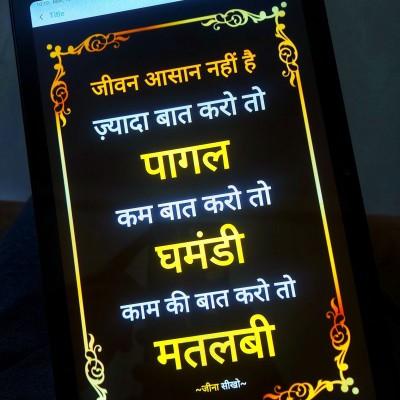 Title
जीवन आसान नहीं है
ज़्यादा बात करो तो
पागल
कम बात करो तो
घमंडी
काम की बात करो तो
मतलबी
~जीना सीखो~